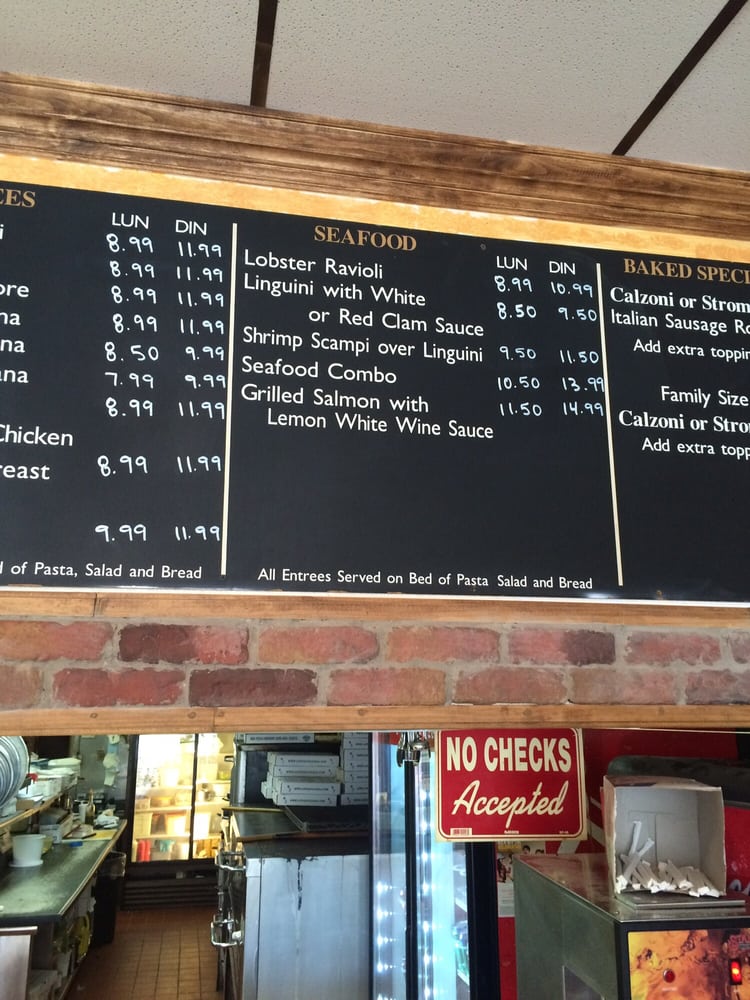 LUN DIN
8.99 11.99
8.99 11.99
8.99 11.99
8.99 11.99
8.50 9.99
7.99 9.99
8.99 11.99
Chicken
8.99 11.99
9.99 11.99
of Pasta, Salad and Bread
SEAFOOD
LUN DIN
Lobster Ravioli 8.99 10.99
Linguini with White
or Red Clam Sauce 8.50 9.50
Shrimp Scampi over Linguini 9.50 11.50
Seafood Combo 10.50 13.99
Grilled Salmon with 11.50 14.99
Lemon White Wine Sauce
All Entrees Served on Bed of Pasta Salad and Bread
BAKED SPECI
Calzoni or Strom
Italian Sausage Ro
Add extra toppin
Family Size
Calzoni or Stro
Add extra topp
NO CHECKS
Accepted